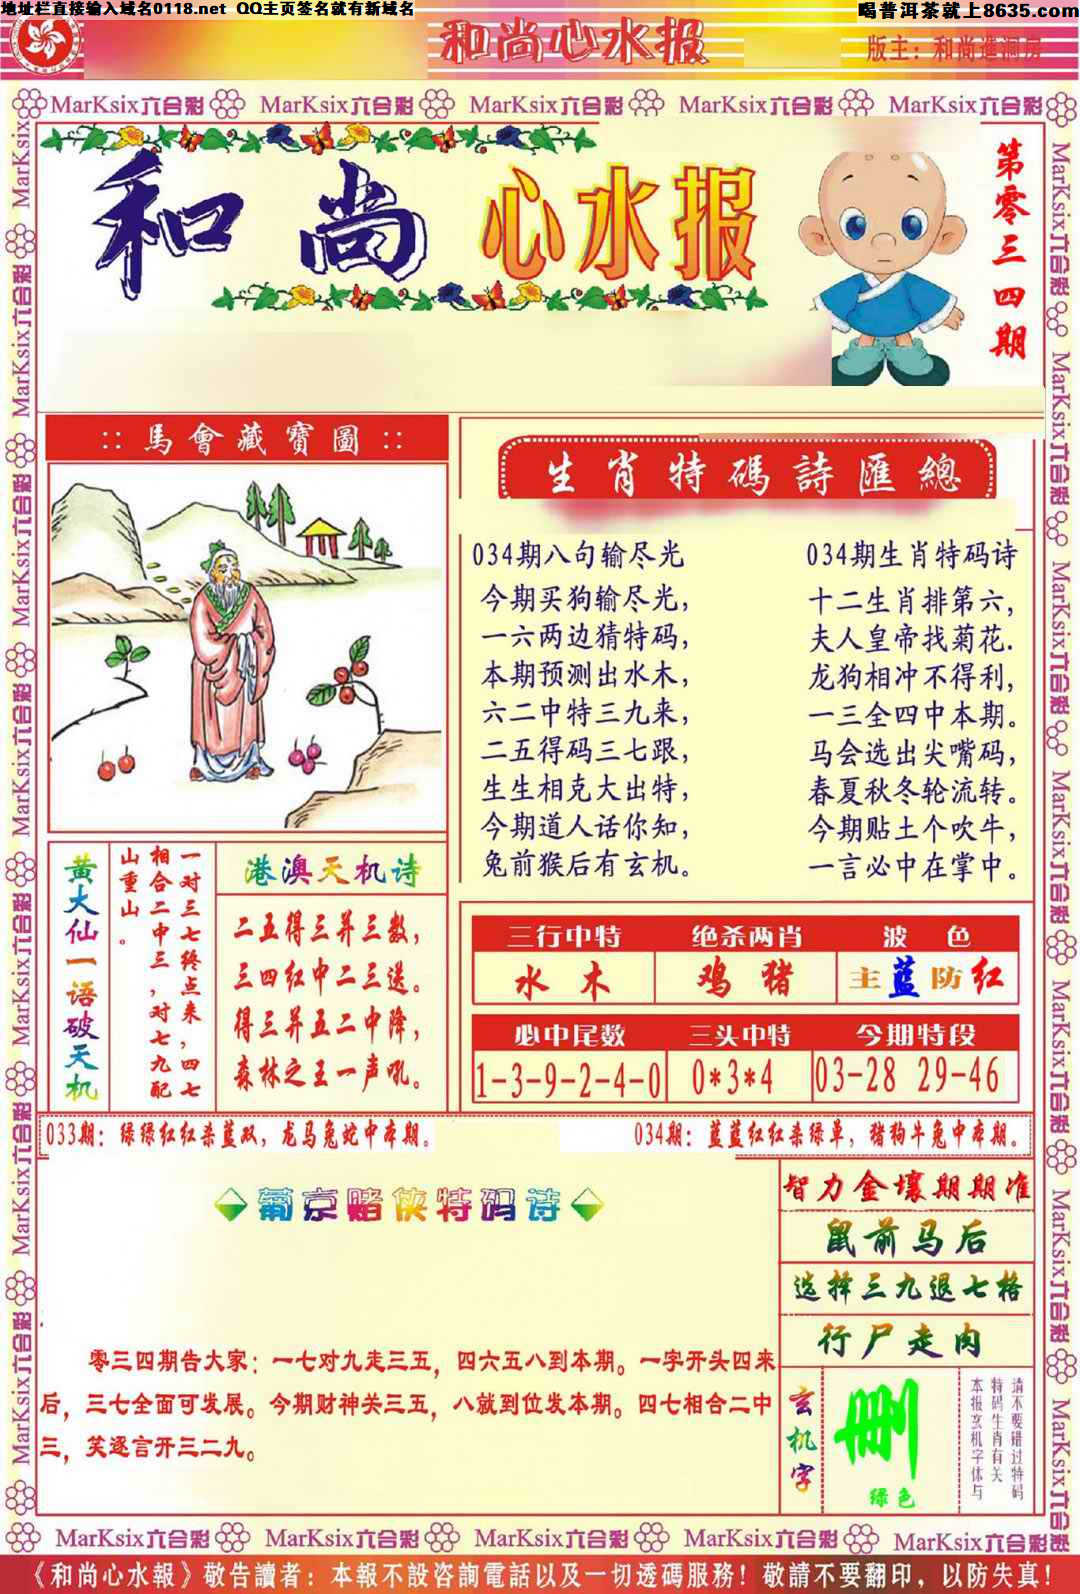 地址栏直接输入域名0118.net QQ主页签名就有新域名
喝普洱茶就上8635.com
和尚心水报
版主：和尚進洞房
MarKsix六合彩 MarKsix六合彩 MarKsix六合彩 MarKsix六合彩 MarKsix六合彩
和尚 心水报
第零三四期
::馬會藏寶圖::
生肖特碼詩匯總
034期八句输尽光
今期买狗输尽光,
一六两边猜特码,
本期预测出水木,
六二中特三九来,
二五得码三七跟,
生生相克大出特,
今期道人话你知,
兔前猴后有玄机。
034期生肖特码诗
十二生肖排第六,
夫人皇帝找菊花.
龙狗相冲不得利,
一三全四中本期。
马会选出尖嘴码,
春夏秋冬轮流转。
今期贴土个吹牛,
一言必中在掌中。
黄大仙一语破天机
一对三七终点来,四七
相合二中三,对七九配
山重山。
港澳天机诗
二五得三并三数,
三四红中二三送。
得三并五二中降,
森林之王一声吼。
三行中特 绝杀两肖 波色
水木 鸡猪 主蓝防红
必中尾数 三头中特 今期特段
1-3-9-2-4-0 0*3*4 03-28 29-46
033期：绿绿红红杀蓝双，龙马兔蛇中本期。
034期：蓝蓝红红杀绿单，猪狗牛兔中本期。
葡京赌侠特码诗
零三四期告大家：一七对九走三五，四六五八到本期。一字开头四来
后，三七全面可发展。今期财神关三五，八就到位发本期。四七相合二中
三，笑逐言开三二九。
智力金壤期期准
鼠前马后
选择三九退七格
行尸走肉
玄机字
删
绿色
请不要错过特码
特码生肖有关
本报玄机字体与
MarKsix六合彩 MarKsix六合彩 MarKsix六合彩 MarKsix六合彩
《和尚心水報》敬告讀者：本報不設咨詢電話以及一切透碼服務！敬請不要翻印，以防失真！